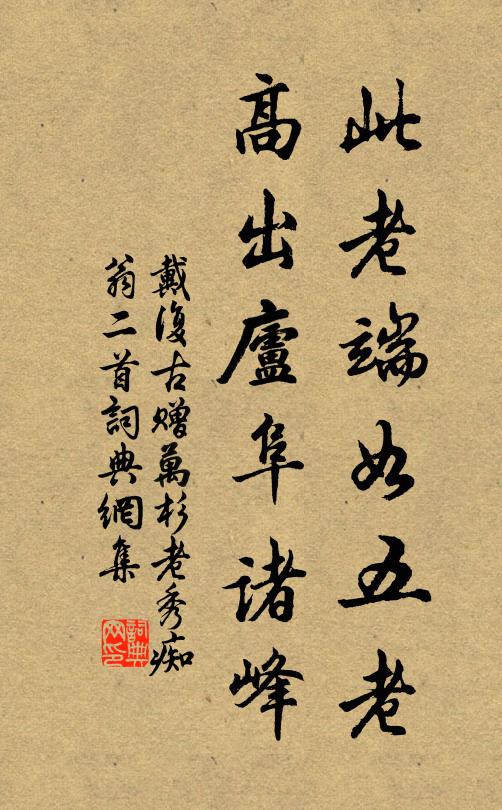 此老端如五老
高出廬阜诸峰
戴復古赠萬杉老秀痴
翁二首詞典網集
詞典网印